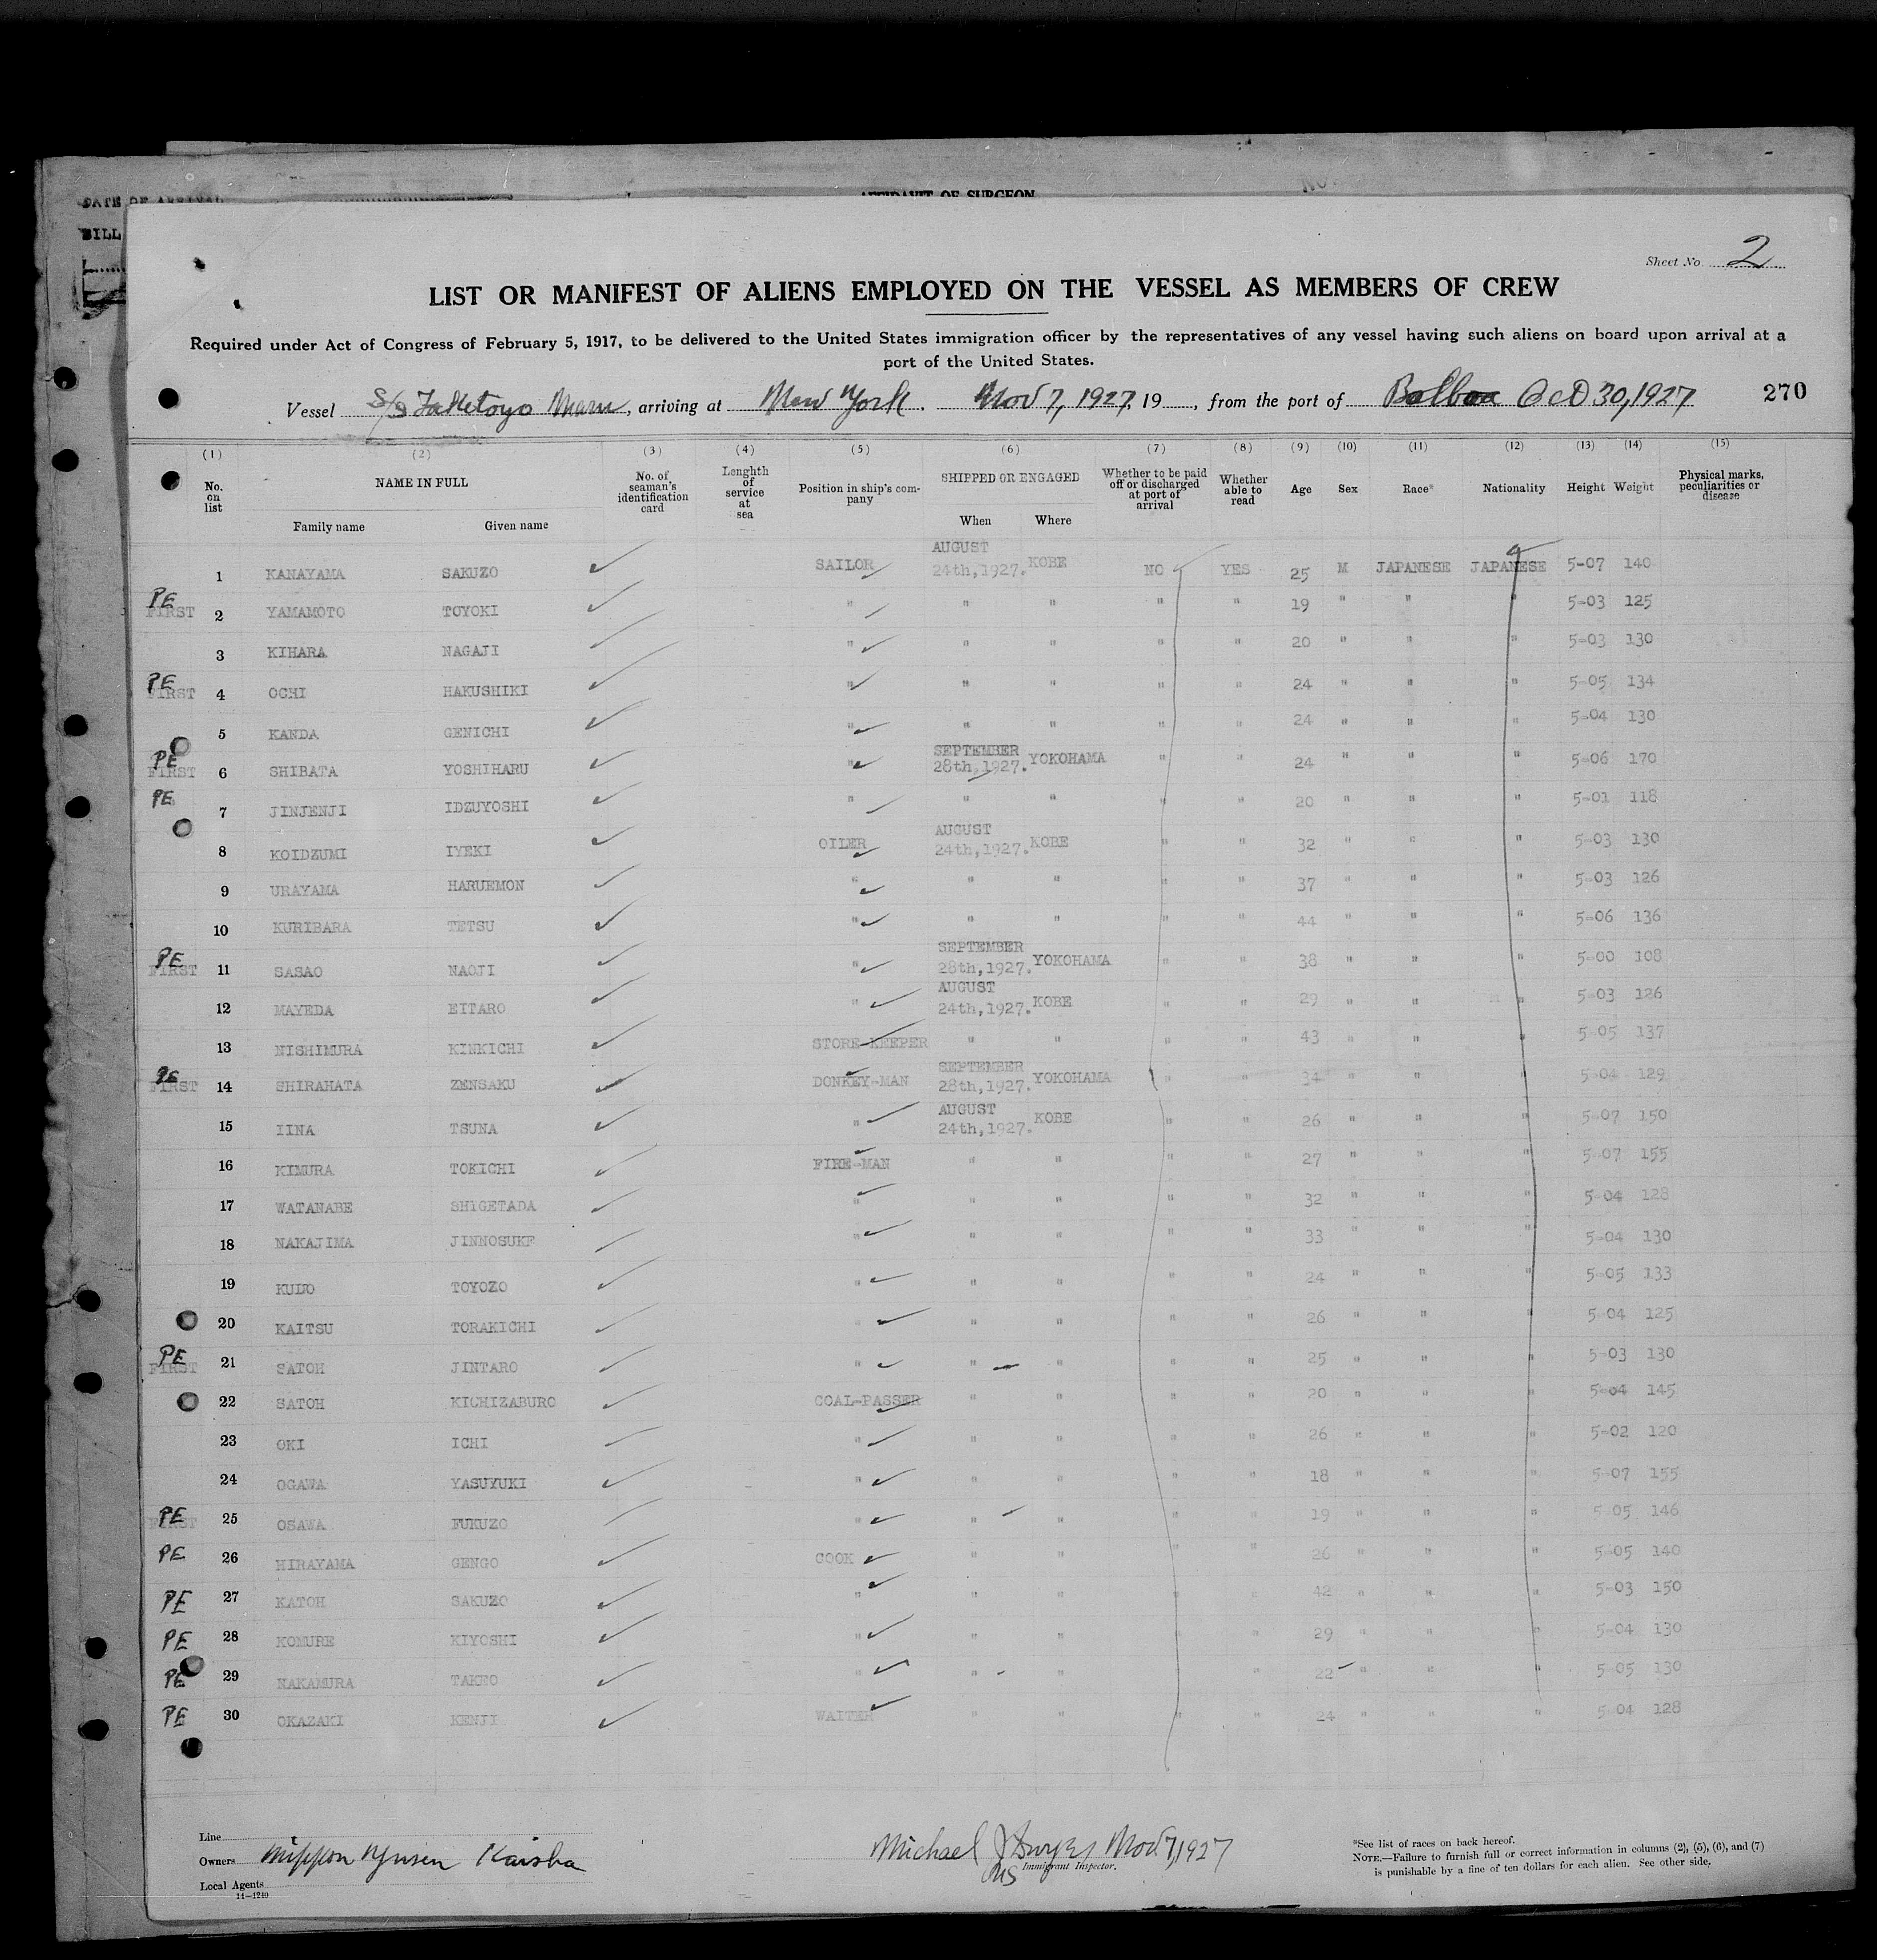 DATE OF ARRIVAL
AFFIDAVIT OF SURGEON
BILL
Sheet No. 2
LIST OR MANIFEST OF ALIENS EMPLOYED ON THE VESSEL AS MEMBERS OF CREW
Required under Act of Congress of February 5, 1917, to be delivered to the United States immigration officer by the representatives of any vessel having such aliens on board upon arrival at a
port of the United States.
Vessel S/S Taketoyo Maru, arriving at New York. Nov 7, 1927, 19 , from the port of Balboa Oct 30, 1927 270
(1) (2) (3) (4) (5) (6) (7) (8) (9) (10) (11) (12) (13) (14) (15)
No. on list NAME IN FULL Family name Given name No. of seaman's identification card Lenghth of service at sea Position in ship's company SHIPPED OR ENGAGED When Where Whether to be paid off or discharged at port of arrival Whether able to read Age Sex Race* Nationality Height Weight Physical marks, peculiarities or disease
1 KANAYAMA SAKUZO SAILOR AUGUST 24th,1927. KOBE NO YES 25 M JAPANESE JAPANESE 5-07 140
PE FIRST 2 YAMAMOTO TOYOKI " " " " " 19 " " " 5-03 125
3 KIHARA NAGAJI " " " " " 20 " " " 5-03 130
PE FIRST 4 OCHI HAKUSHIKI " " " " " 24 " " " 5-05 134
5 KANDA GENICHI " " " " " 24 " " " 5-04 130
PE FIRST 6 SHIBATA YOSHIHARU " SEPTEMBER 28th,1927. YOKOHAMA " " 24 " " " 5-06 170
PE 7 JINJENJI IDZUYOSHI " " " " " 20 " " " 5-01 118
8 KOIDZUMI IYEKI OILER AUGUST 24th,1927. KOBE " " 32 " " " 5-03 130
9 URAYAMA HARUEMON " " " " " 37 " " " 5-03 126
10 KURIBARA TETSU " " " " " 44 " " " 5-06 136
PE FIRST 11 SASAO NAOJI " SEPTEMBER 28th,1927. YOKOHAMA " " 38 " " " 5-00 108
12 MAYEDA EITARO " AUGUST 24th,1927. KOBE " " 29 " " " 5-03 126
13 NISHIMURA KINKICHI STORE-KEEPER " " " " 43 " " " 5-05 137
PE FIRST 14 SHIRAHATA ZENSAKU DONKEY-MAN SEPTEMBER 28th,1927. YOKOHAMA " " 34 " " " 5-04 129
15 IINA TSUNA " AUGUST 24th,1927. KOBE " " 26 " " " 5-07 150
16 KIMURA TOKICHI FIRE-MAN " " " " 27 " " " 5-07 155
17 WATANABE SHIGETADA " " " " " 32 " " " 5-04 128
18 NAKAJIMA JINNOSUKE " " " " " 33 " " " 5-04 130
19 KUDO TOYOZO " " " " " 24 " " " 5-05 133
20 KAITSU TORAKICHI " " " " " 26 " " " 5-04 125
PE FIRST 21 SATOH JINTARO " " " " " 25 " " " 5-03 130
22 SATOH KICHIZABURO COAL-PASSER " " " " 20 " " " 5-04 145
23 OKI ICHI " " " " " 26 " " " 5-02 120
24 OGAWA YASUYUKI " " " " " 18 " " " 5-07 155
PE FIRST 25 OSAWA FUKUZO " " " " " 19 " " " 5-05 146
PE 26 HIRAYAMA GENGO COOK " " " " 26 " " " 5-05 140
PE 27 KATOH SAKUZO " " " " " 42 " " " 5-03 150
PE 28 KOMURE KIYOSHI " " " " " 29 " " " 5-04 130
PE 29 NAKAMURA TAKEO " " " " " 22 " " " 5-05 130
PE 30 OKAZAKI KENJI WAITER " " " " 24 " " " 5-04 128
Line
Owners Nippon Yusen Kaisha
Local Agents
14-1240
Michael J Dwyer Nov. 7, 1927
Immigrant Inspector.
*See list of races on back hereof.
NOTE.—Failure to furnish full or correct information in columns (2), (5), (6), and (7)
is punishable by a fine of ten dollars for each alien. See other side.